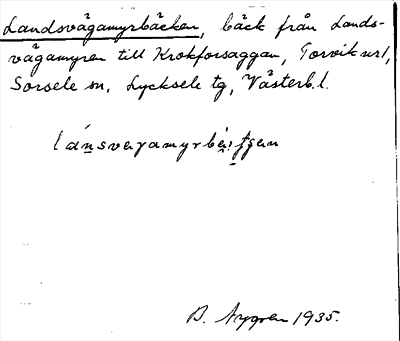 Landsvågamyrbäcken, bäck från Lands-
vågamyren till Krokforsaggan, Torvik nr 1,
Sorsele sn, Lycksele tg, Västerb. l.
B. Nygren 1935.